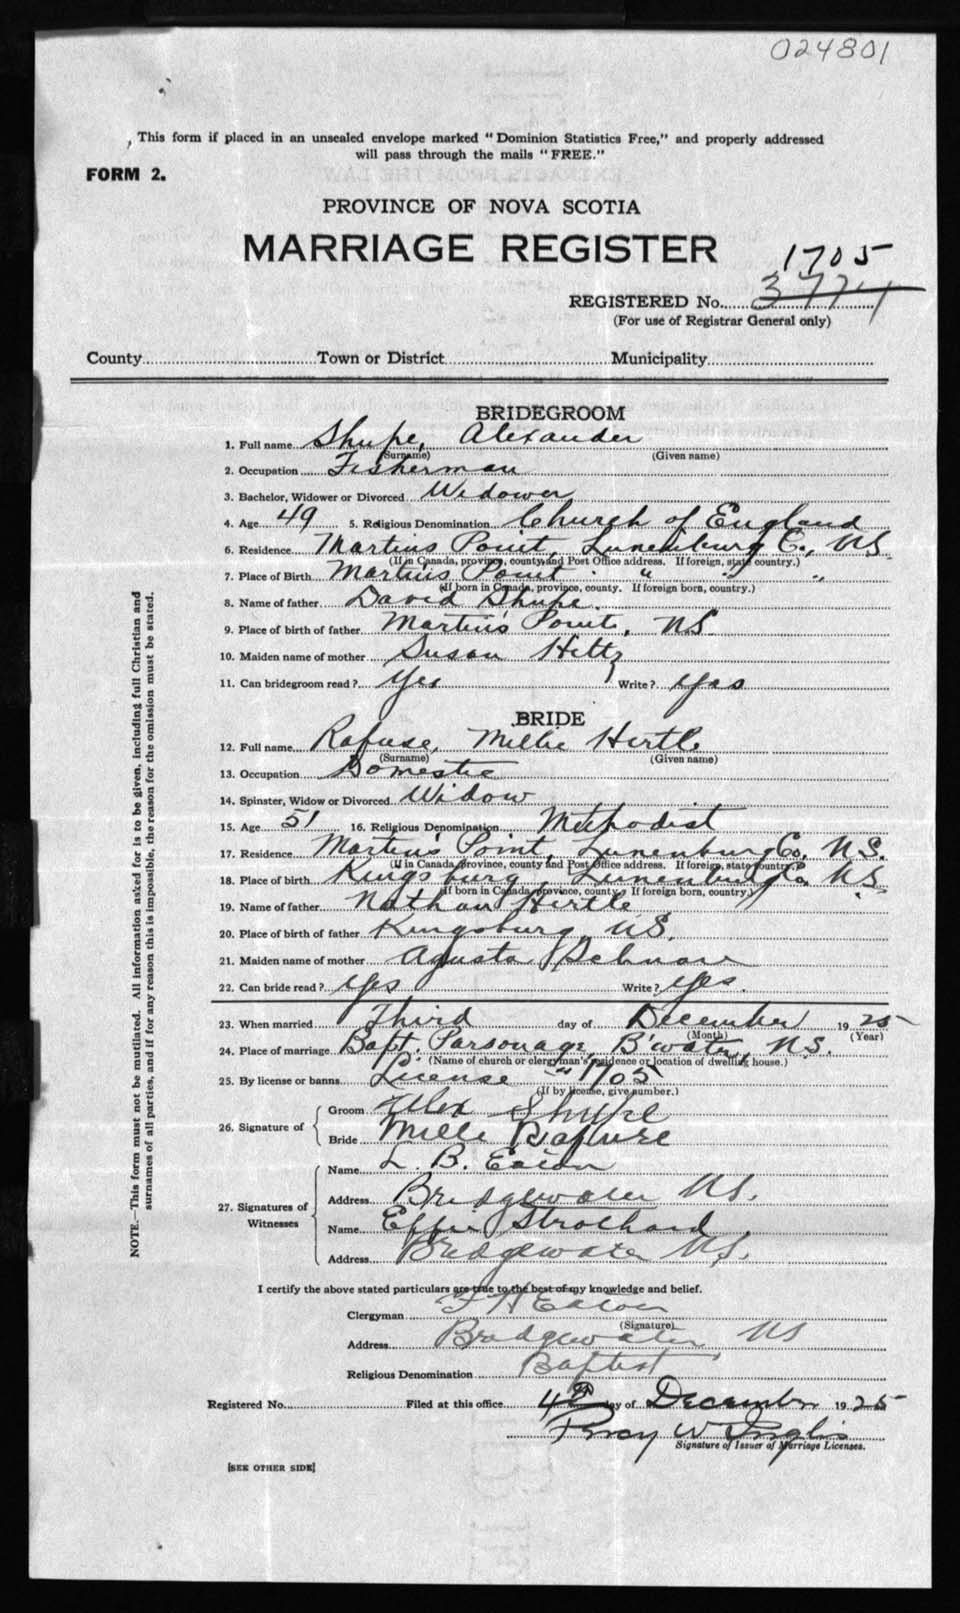 024801
This form if placed in an unsealed envelope marked "Dominion Statistics Free," and properly addressed
will pass through the mails "FREE."
FORM 2.
PROVINCE OF NOVA SCOTIA
MARRIAGE REGISTER
1705
REGISTERED No. 3774
(For use of Registrar General only)
County Town or District Municipality
BRIDEGROOM
1. Full name Shupe, Alexander
(Surname) (Given name)
2. Occupation Fisherman
3. Bachelor, Widower or Divorced Widower
4. Age 49 5. Religious Denomination Church of England
6. Residence Martins Point, Lunenburg Co., NS
(If in Canada, province, county and Post Office address. If foreign, state country.)
7. Place of Birth Martin's Point " " "
(If born in Canada, province, county. If foreign born, country.)
8. Name of father David Shupe
9. Place of birth of father Martin's Point, NS
10. Maiden name of mother Susan Hiltz
11. Can bridegroom read? Yes Write? Yes
BRIDE
12. Full name Rafuse, Millie Hirtle
(Surname) (Given name)
13. Occupation Domestic
14. Spinster, Widow or Divorced Widow
15. Age 51 16. Religious Denomination Methodist
17. Residence Martin's Point, Lunenburg Co. N.S.
(If in Canada, province, county and Post Office address. If foreign, state country.)
18. Place of birth Kingsburg, Lunenburg Co. NS
(If born in Canada, province, county. If foreign born, country.)
19. Name of father Nathan Hirtle
20. Place of birth of father Kingsburg, NS.
21. Maiden name of mother Agusta
22. Can bride read? Yes Write? Yes.
23. When married Third day of December 1925
(Month) (Year)
24. Place of marriage Bapt. Parsonage, B'water, N.S.
(Name of church or clergyman's residence or location of dwelling house.)
25. By license or banns License " 1705
(If by license, give number.)
26. Signature of
Groom Alex Shupe
Bride Mille Rafuse
27. Signatures of Witnesses
Name L. B. Eaton
Address Bridgewater NS.
Name Effie
Address Bridgewater NS.
I certify the above stated particulars are true to the best of my knowledge and belief.
Clergyman F H Eaton
(Signature)
Address Bridgewater NS
Religious Denomination Baptist
Registered No. Filed at this office 4th day of December 1925
Percy W Inglis
Signature of Issuer of Marriage Licenses.
[SEE OTHER SIDE]
NOTE.—This form must not be mutilated. All information asked for is to be given, including full Christian and
surnames of all parties, and if for any reason this is impossible, the reason for the omission must be stated.